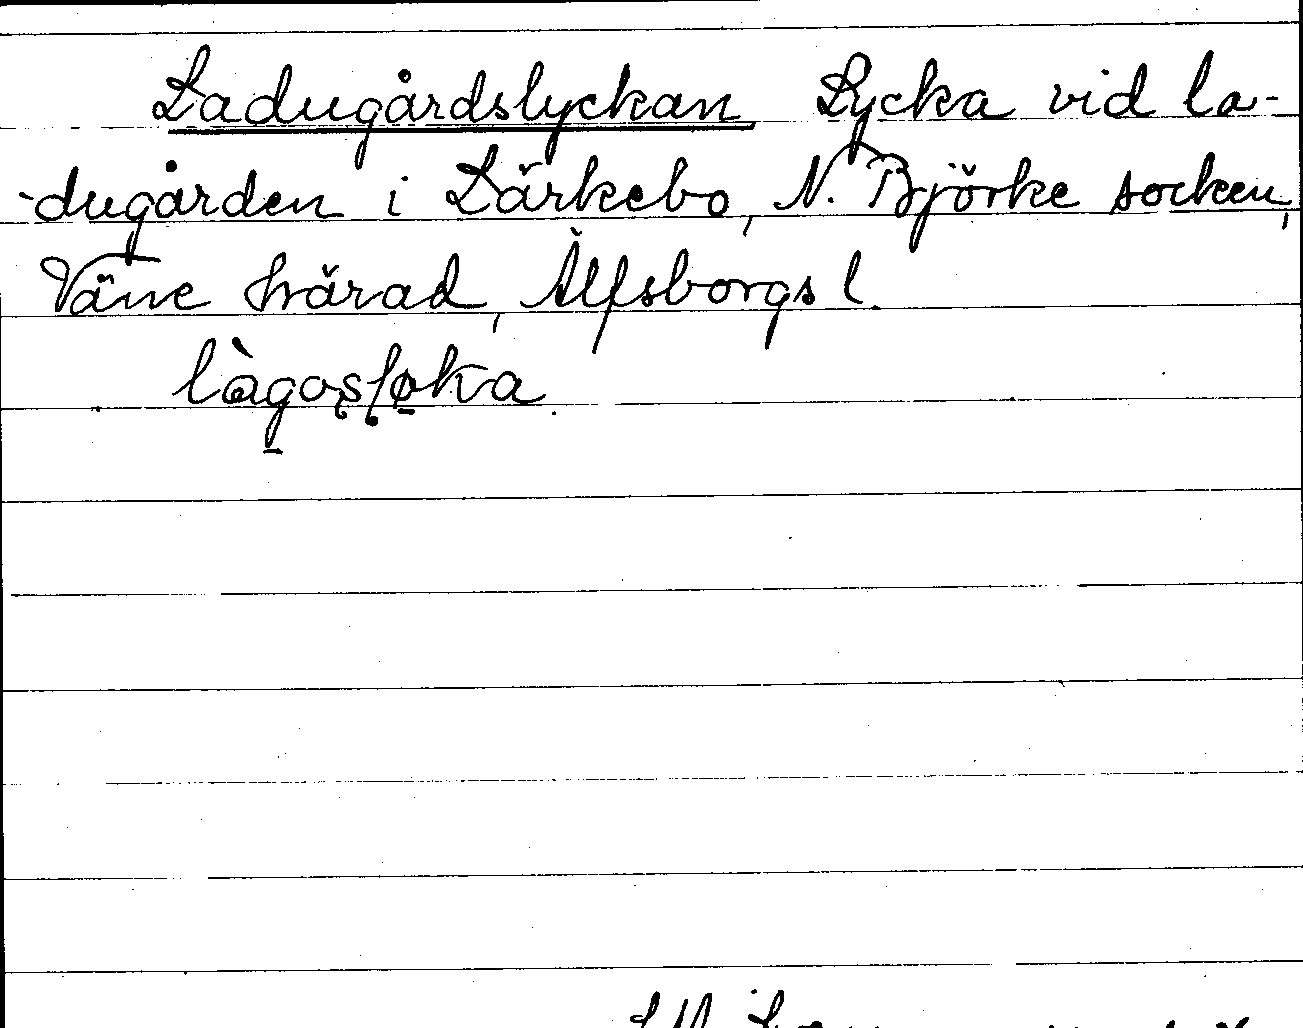 Ladugårdslyckan Lycka vid la-
-dugården i Lärkebo, N. Björke socken,
Väne härad, Älfsborgs l.